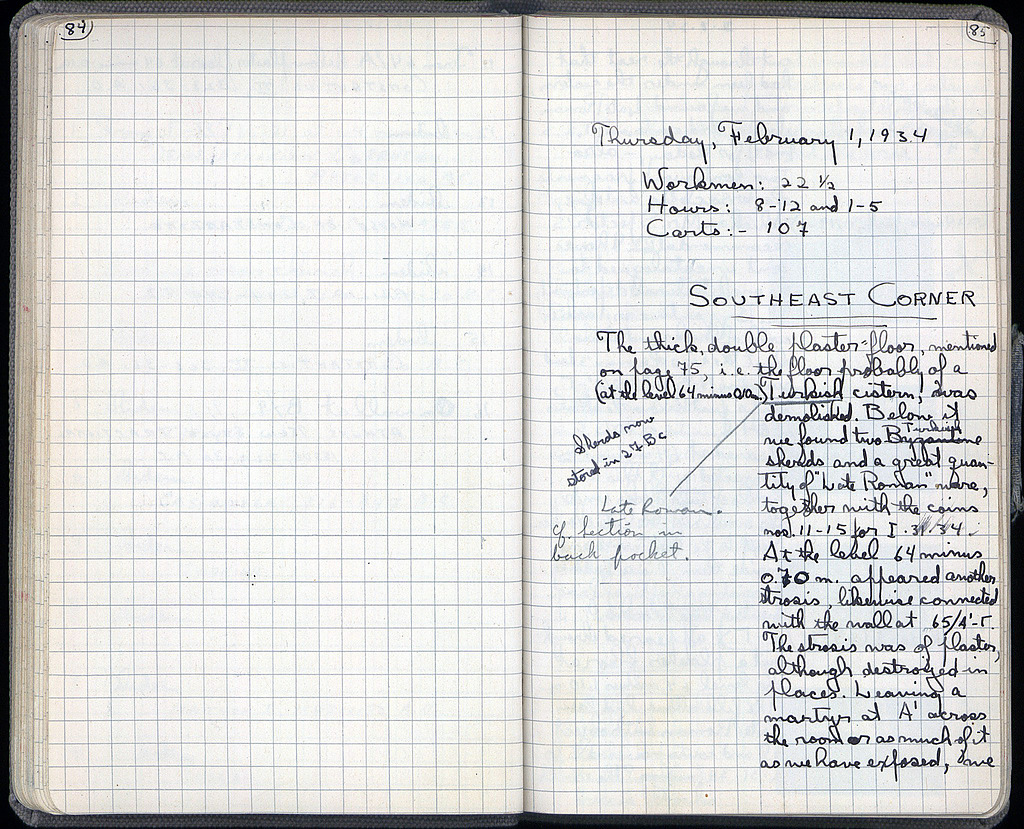 84
85
Thursday, February 1, 1934
Workmen: 22 1/2
Hours: 8-12 and 1-5
Carts:- 107
SOUTHEAST CORNER
The thick, double plaster-floor, mentioned
on page 75, i.e. the floor probably of a
(at the level 64 minus
Turkish cistern, was
demolished. Below it
we found two Byzantine
Turkish
sherds and a great quan-
tity of "Late Roman" ware,
together with the coins
nos. 11-15 for I.31.34.
At the level 64 minus
0.70 m. appeared another
strosis, likewise connected
with the wall at 65/A'-Γ.
The strosis was of plaster,
although destroyed in
places. Leaving a
martyr at A' across
the room or as much of it
as we have exposed, we
Sherds now
stored in 27 Bc
Late Roman.
cf. Section in
back pocket.